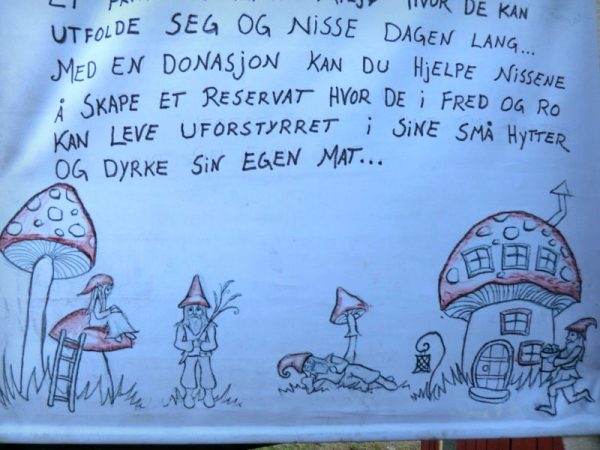 HVOR DE KAN
UTFOLDE SEG OG NISSE DAGEN LANG...
MED EN DONASJON KAN DU HJELPE NISSENE
Å SKAPE ET RESERVAT HVOR DE i FRED OG RO
KAN LEVE UFORSTYRRET i SINE SMÅ HYTTER
OG DYRKE SIN EGEN MAT...